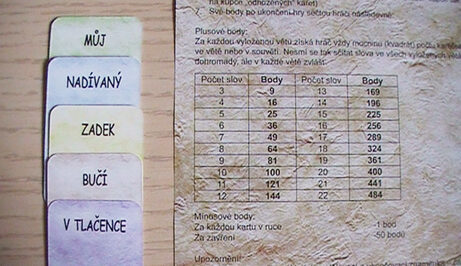 MŮJ
NADÍVANÝ
ZADEK
BUČÍ
V TLAČENCE
na kupón „odhozených" karet)
7. Své body po ukončení hry sčítají hráči následovně:
Plusové body:
Za každou vyloženou větu získá hráč vždy mocninu (kvadrát) počtu
ve větě nebo v souvětí. Nesmí se tak sčítat slova ve všech vyložených
dohromady, ale v každé větě zvlášť.
Počet slov Body Počet slov Body
3 9 13 169
4 16 14 196
5 25 15 225
6 36 16 256
7 49 17 289
8 64 18 324
9 81 19 361
10 100 20 400
11 121 21 441
12 144 22 484
Minusové body:
Za každou kartu v ruce -1 bod
Za zavření -50 bodů
Upozornění: